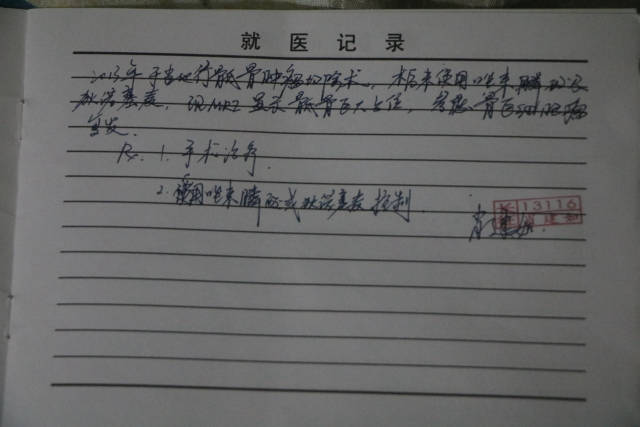 就医记录
2013年于当地行骶骨肿瘤切除术，术后未使用唑来膦酸及
狄诺塞麦，现MRI显示骶骨巨大占位，考虑骨巨细胞瘤
复发。
Rx. 1. 手术治疗.
2. 使用唑来膦酸或狄诺塞麦控制.
13116